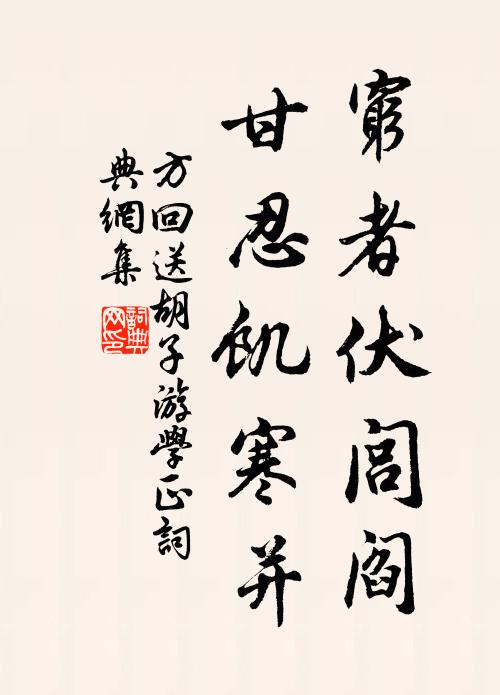 窮者伏閭閻
甘忍飢寒并
方回送胡子游學正詞
典網集
詞典网印